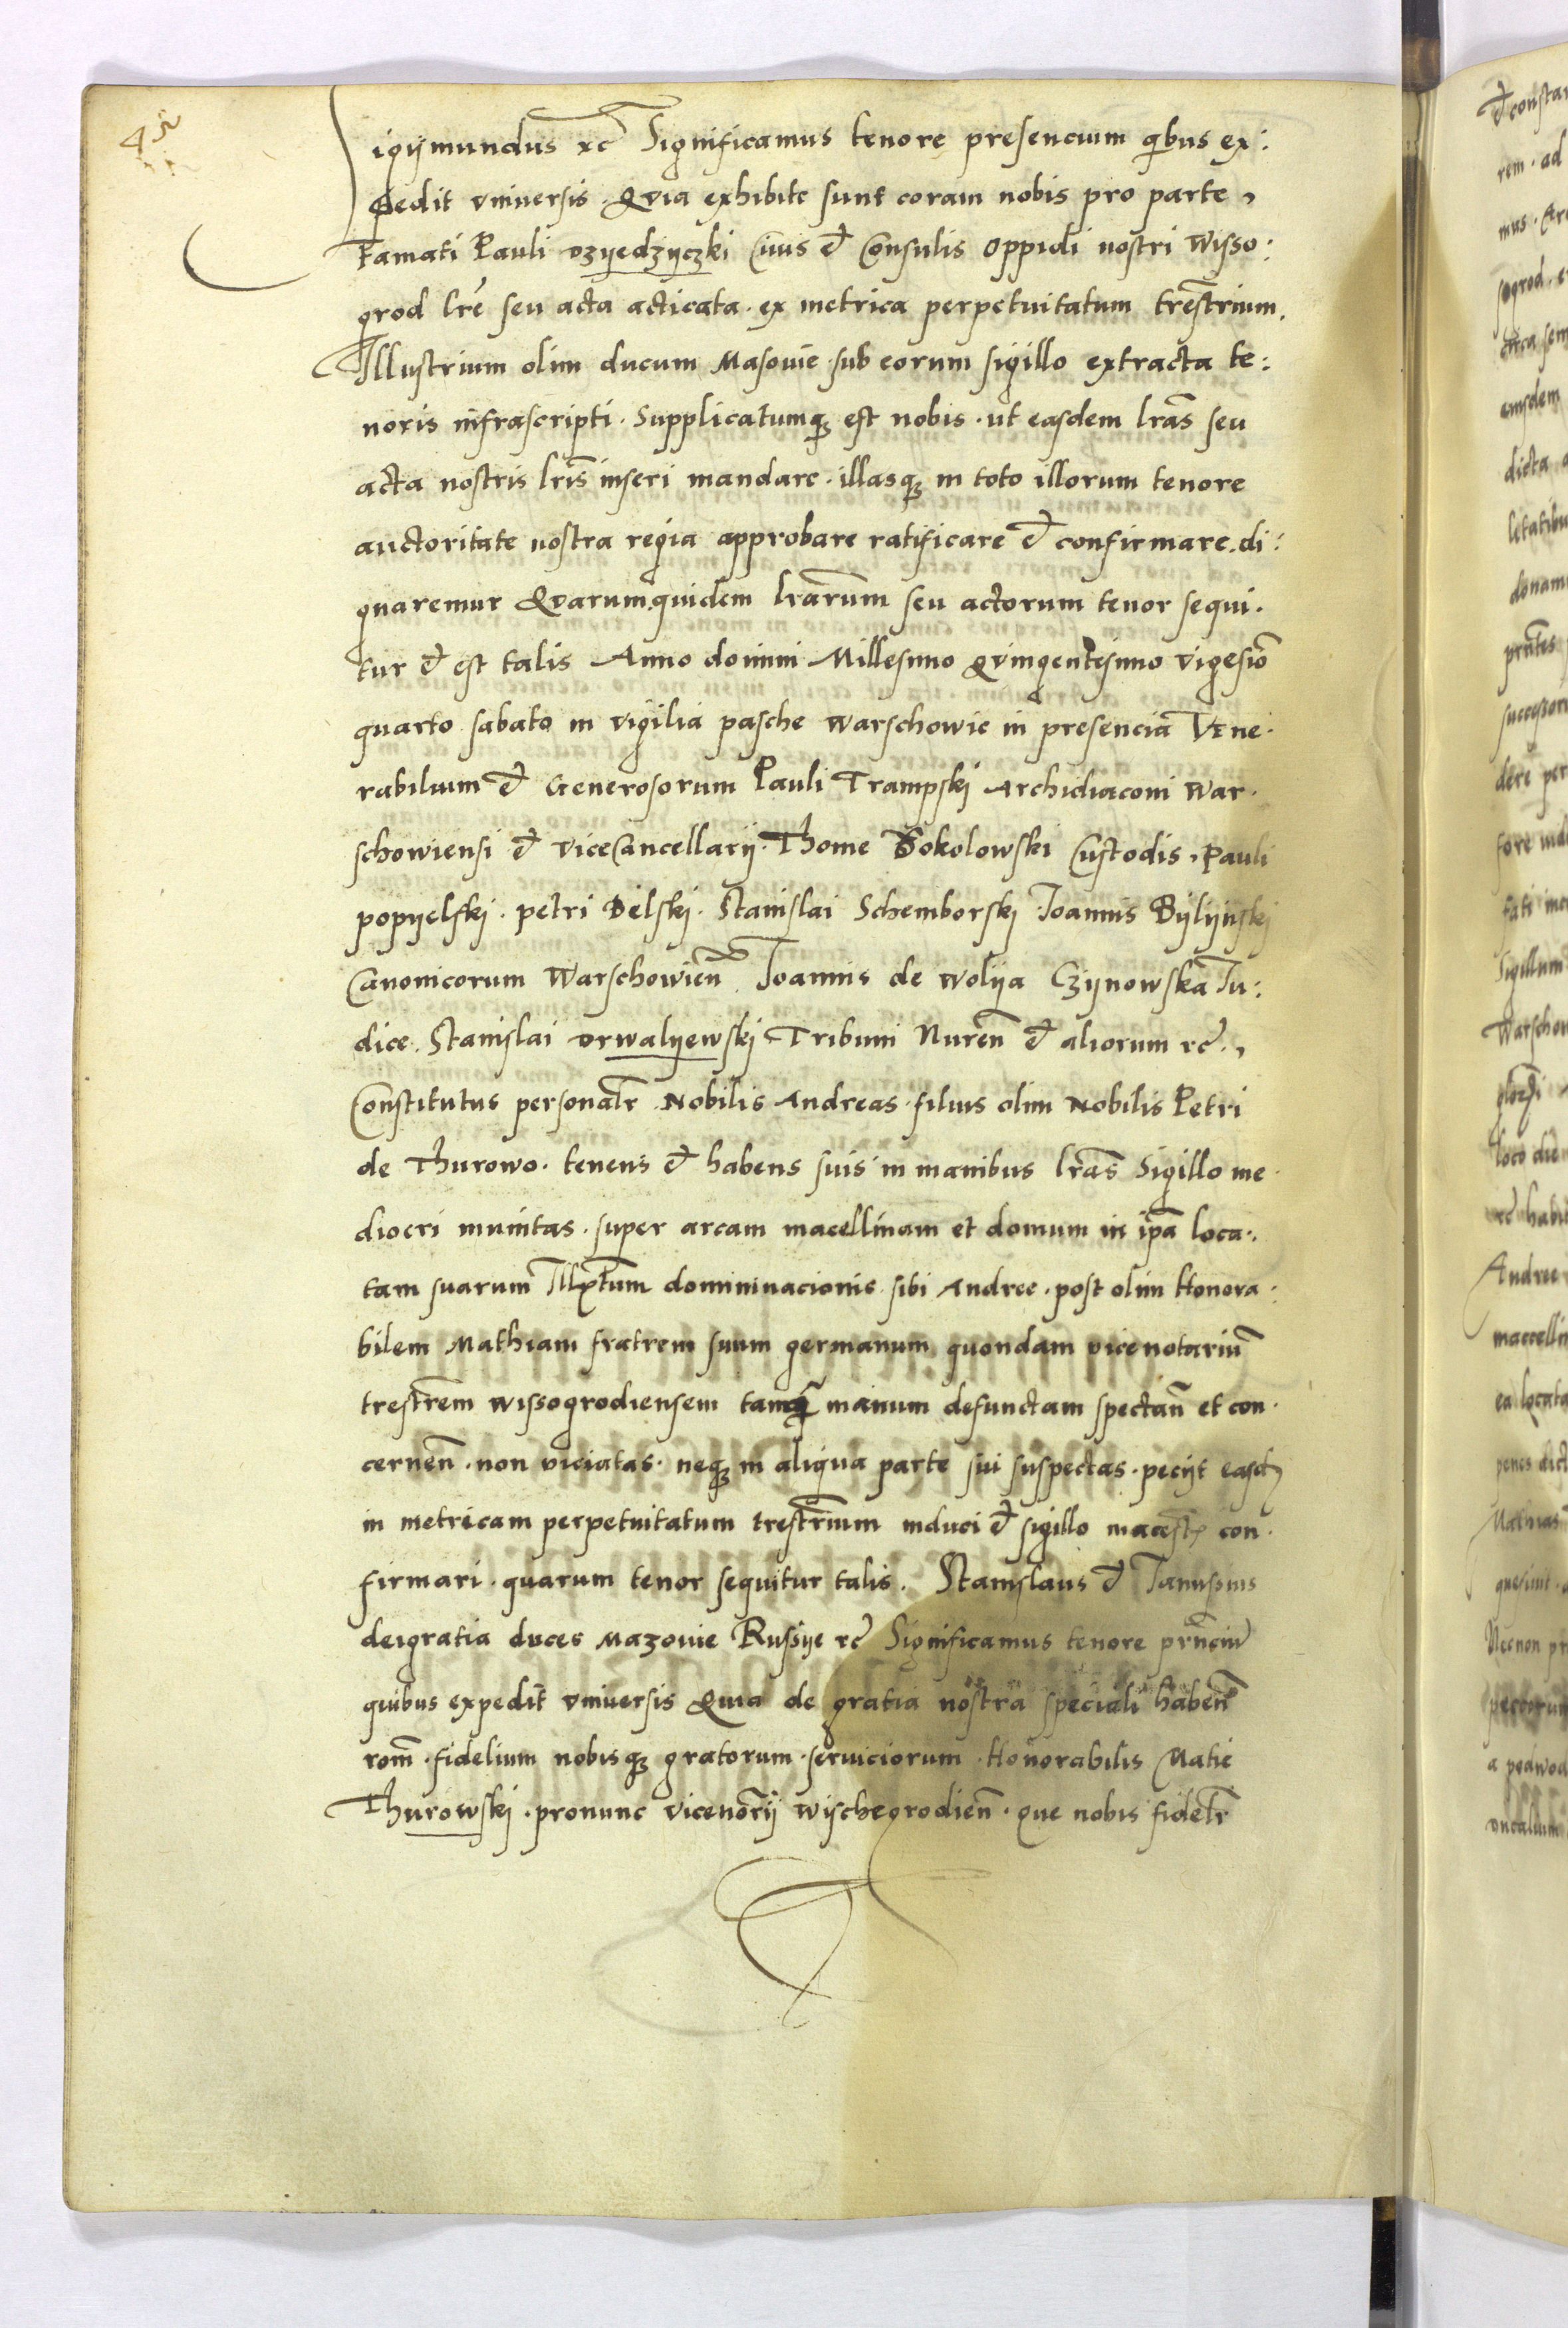 45
igijmundus xc Significamus tenore presencium qbus ex:
pedit vniuersis Qvia exhibite sunt coram nobis pro parte,
Famati Pauli Dzyedzyczki Ciuis et Consulis Oppidi nostri Wisso:
grod lre seu acta acticata ex metrica perpetuitatum trestrium.
Illustrium olim ducum Masouie sub eorum sigillo extracta te:
noris infrascripti. Supplicatumq est nobis. ut easdem lras seu
acta nostris lris inseri mandare. illasq in toto illorum tenore
auctoritate nostra regia approbare ratificare et confirmare. di:
gnaremur Qvarumquidem lrarum seu actorum tenor sequi.
tur et est talis Anno domini Millesimo qvingentesimo vigesio
quarto sabato in vigilia pasche Warschowie in presencia Vene.
rabilium et Generosorum Pauli Trampski Archidiaconi War.
schowiensi et viceCancellarij. Thome Sokolowski Custodis. Pauli
popyelski. petri Delski. Stanislai Schemborski Joannis Bylynski
Canonicorum Warschowien Joannis de wolya Czynowska Ju:
dice. Stanislai Drwalyewski Tribuni Nuren et aliorum rc.,
Constitutus personalr Nobilis Andreas. filius olim Nobilis Petri
de Thurowo. tenens et habens suis in manibus lras Sigillo me.
diocri munitas. super arcam macellinam et domum in ipa loca.
tam suarum Illtum domininacionis. sibi Andree. post olim Honora.
bilem Mathiam fratrem suum germanum quondam vicenotariu
trestrem wissogrodiensem tamq manum defunctam spectan et con.
cernen. non viciatas. neq in aliqua parte sui suspectas. pecijt easd
in metricam perpetuitatum trestrium induci et sigillo maiest con.
firmari. quarum tenor sequitur talis. Stanislaus et Janussius
deigratia duces Mazouie Russije rc Significamus tenore prnciu
quibus expedit vniuersis Quia de gratia nostra speciali haben
rom. fidelium nobisq gratorum. seruiciorum. Honorabilis Matie
Thurowski. pronunc vicenorij wischegrodien. que nobis fidelr